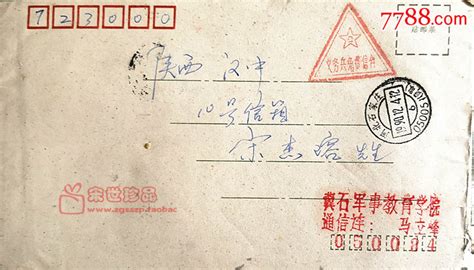 7788.com
723000
贴邮票
义务兵免费信件
陕西 汉中
10号信箱
宋杰瑢先生
河北石家庄
1990.12.4.12
050051
宋世珍品
www.zgsszp.taobao
冀石军事教育学院
通信连: 马立峰
050084